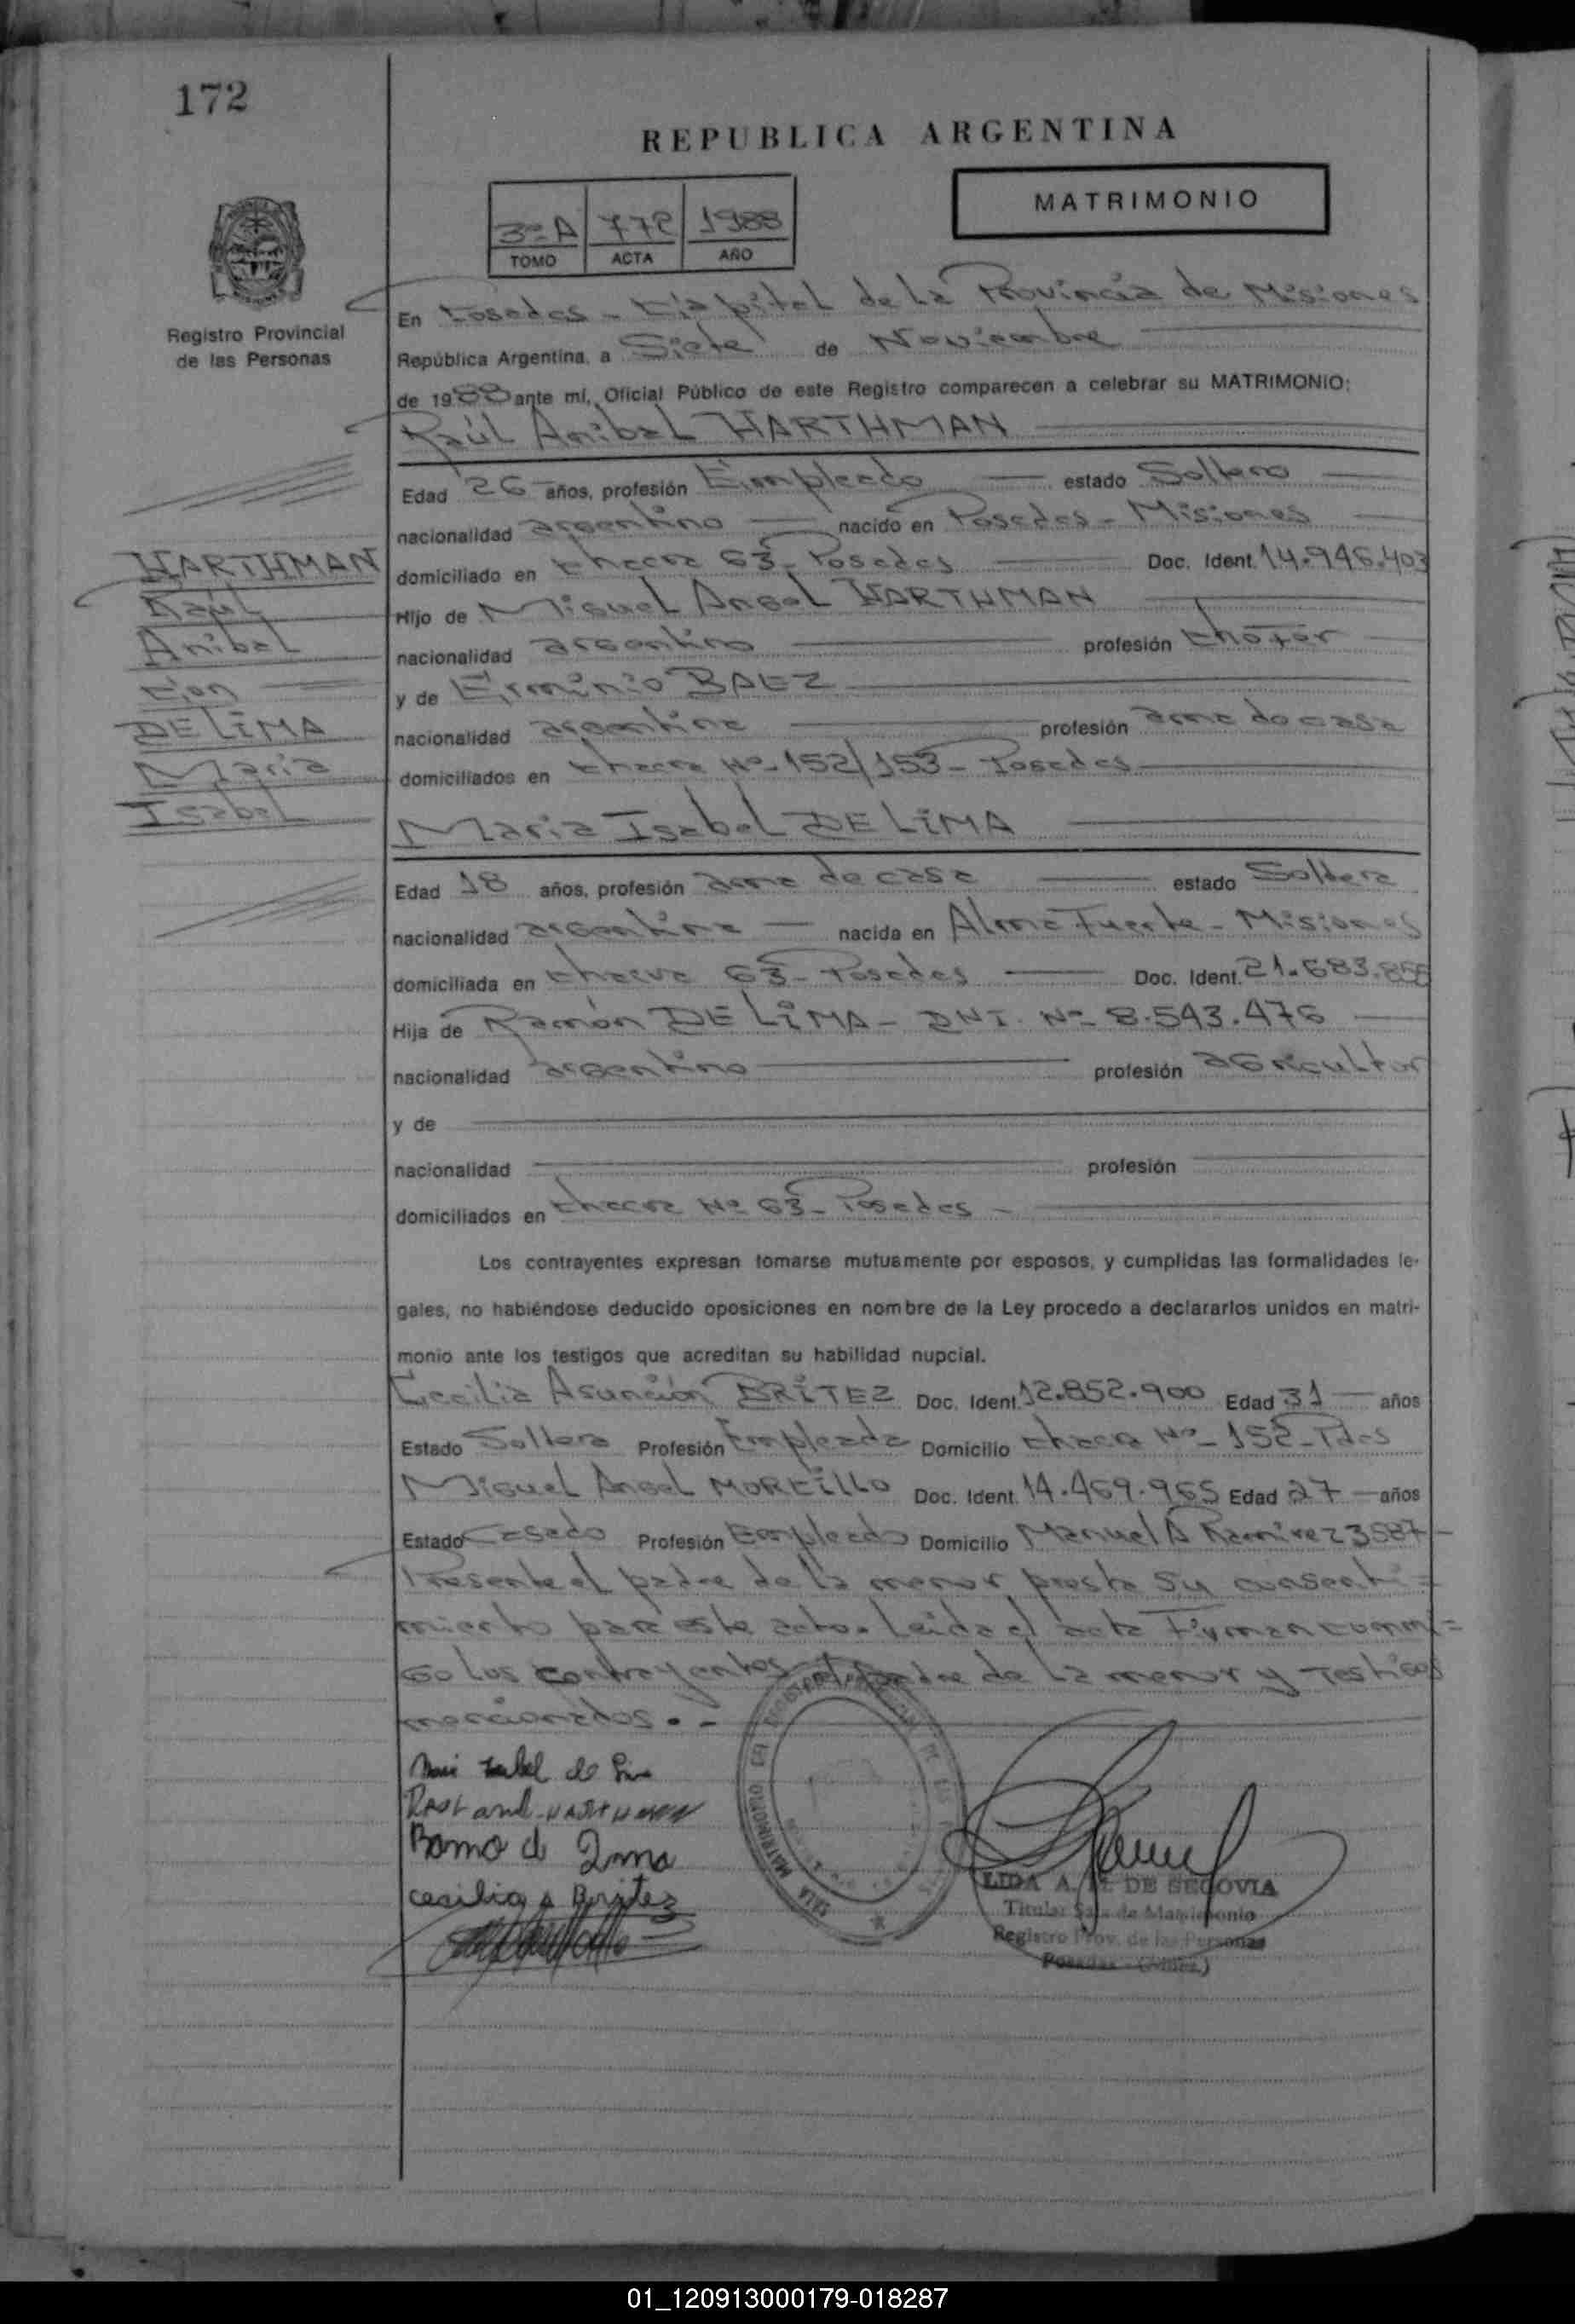 172
REPUBLICA ARGENTINA
MATRIMONIO
3º-A 772 1988
TOMO ACTA AÑO
Registro Provincial
de las Personas
En Posadas - Capital de la Provincia de Misiones
República Argentina, a Siete de Noviembre
de 1988 ante mí, Oficial Público de este Registro comparecen a celebrar su MATRIMONIO:
Raúl Anibal HARTHMAN
Edad 26 años, profesión Empleado estado Soltero
nacionalidad argentino nacido en Posadas - Misiones
domiciliado en chacra 63 - Posadas Doc. Ident. 14.946.403
Hijo de Miguel Angel HARTHMAN
nacionalidad argentino profesión chofer
y de Erminio BAEZ
nacionalidad argentina profesión ama de casa
domiciliados en chacra Nº-152/153 - Posadas
HARTHMAN
Raúl
Anibal
Con
DE LIMA
Maria
Isabel
Maria Isabel DE LIMA
Edad 18 años, profesión ama de casa estado Soltera
nacionalidad argentina nacida en Alma Fuerte - Misiones
domiciliada en chacra 63 - Posadas Doc. Ident. 21.683.
Hija de Ramón DE LIMA - DNI. Nº- 8.543.476
nacionalidad argentino profesión agricultor
y de
nacionalidad profesión
domiciliados en chacra Nº 63 - Posadas -
Los contrayentes expresan tomarse mutuamente por esposos, y cumplidas las formalidades le-
gales, no habiéndose deducido oposiciones en nombre de la Ley procedo a declararlos unidos en matri-
monio ante los testigos que acreditan su habilidad nupcial.
Cecilia Asunción BRITEZ Doc. Ident. 12.852.900 Edad 31 años
Estado Soltera Profesión Empleada Domicilio chacra Nº- 152 - Pdas
Miguel Angel MORCILLO Doc. Ident. 14.469.965 Edad 27 años
Estado Casado Profesión Empleado Domicilio Manuel A Ramirez 3587 -
Presente el padre de la menor presta su consenti=
miento para este acto. Leida el acta Firman conmi=
go los contrayentes el padre de la menor y testigos
mencionados. -
Isabel de
Raul HARTHMAN
Ramo de Lima
cecilia a Britez
LIDA A. DE SEGOVIA
Titular Sala de Matrimonio
Registro Prov. de las Personas
Posadas - (Mnes.)
01_120913000179-018287